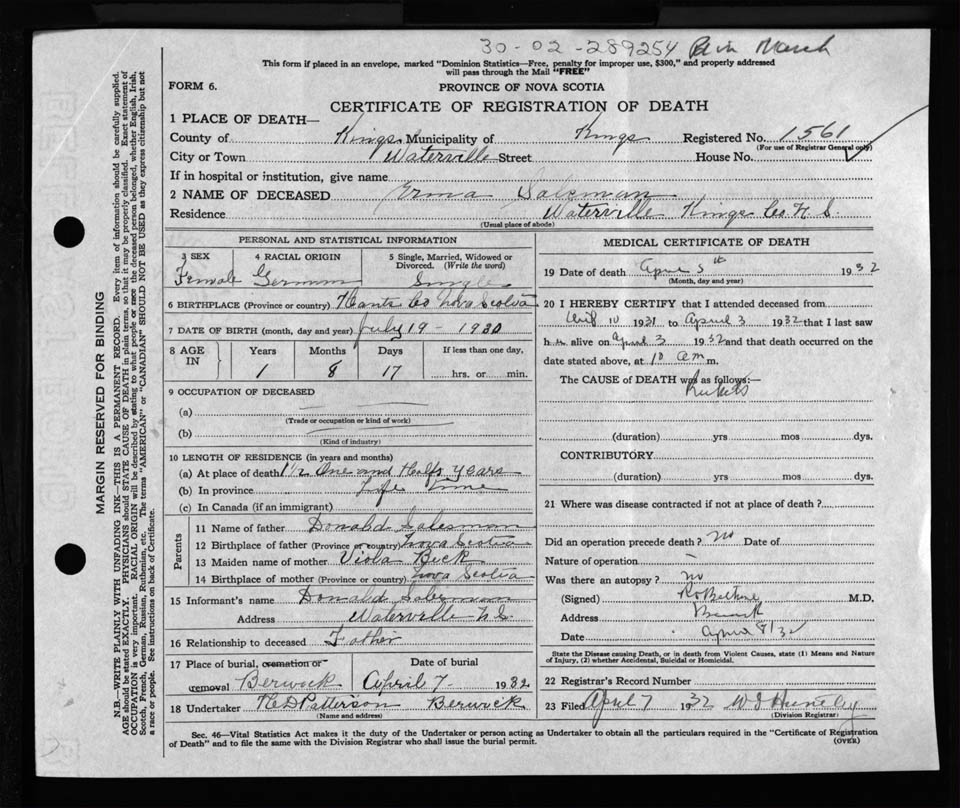 30-02-289254
This form if placed in an envelope, marked "Dominion Statistics—Free, penalty for improper use, $300," and properly addressed
will pass through the Mail "FREE"
FORM 6.
PROVINCE OF NOVA SCOTIA
CERTIFICATE OF REGISTRATION OF DEATH
1 PLACE OF DEATH—
County of Kings Municipality of Kings Registered No. 1561
(For use of Registrar General only)
City or Town Waterville Street House No.
If in hospital or institution, give name
2 NAME OF DECEASED Erma Saleman
Residence Waterville Kings Co N.S.
(Usual place of abode)
PERSONAL AND STATISTICAL INFORMATION
3 SEX 4 RACIAL ORIGIN 5 Single, Married, Widowed or Divorced. (Write the word)
Female German Single
6 BIRTHPLACE (Province or country) Hants Co Nova Scotia
7 DATE OF BIRTH (month, day and year) July 19 - 1930
8 AGE IN Years Months Days If less than one day,
1 8 17 hrs. or min.
9 OCCUPATION OF DECEASED
(a)
(Trade or occupation or kind of work)
(b)
(Kind of industry)
10 LENGTH OF RESIDENCE (in years and months)
(a) At place of death 1½ One and Half years
(b) In province Life Time
(c) In Canada (if an immigrant)
Parents
11 Name of father Donald Salesman
12 Birthplace of father (Province or country) Nova Scotia
13 Maiden name of mother Viola Beck
14 Birthplace of mother (Province or country) Nova Scotia
15 Informant's name Donald Saleman
Address Waterville N.S
16 Relationship to deceased Father
17 Place of burial, cremation or removal Berwick Date of burial April 7 1932
18 Undertaker R D Patterson Berwick
(Name and address)
MEDICAL CERTIFICATE OF DEATH
19 Date of death April 5th 1932
(Month, day and year)
20 I HEREBY CERTIFY that I attended deceased from
10 1931 to April 3 1932 that I last saw
h alive on April 3 1932 and that death occurred on the
date stated above, at 10 a m m.
The CAUSE OF DEATH was as follows:—
Rickets
(duration) yrs mos dys.
CONTRIBUTORY
(duration) yrs mos dys.
21 Where was disease contracted if not at place of death?
Did an operation precede death? no Date of
Nature of operation –
Was there an autopsy? no
(Signed) M.D.
Address Berwick
Date April 8/32
State the Disease causing Death, or in death from Violent Causes, state (1) Means and Nature
of Injury, (2) whether Accidental, Suicidal or Homicidal.
22 Registrar's Record Number
23 Filed April 7 1932 W S Huntley
(Division Registrar)
Sec. 46—Vital Statistics Act makes it the duty of the Undertaker or person acting as Undertaker to obtain all the particulars required in the "Certificate of Registration
of Death" and to file the same with the Division Registrar who shall issue the burial permit.
(OVER)
MARGIN RESERVED FOR BINDING
N.B.—WRITE PLAINLY WITH UNFADING INK—THIS IS A PERMANENT RECORD. Every item of information should be carefully supplied.
AGE should be stated EXACTLY. PHYSICIANS should STATE CAUSE OF DEATH in plain terms, so that it may be properly classified. Exact statement of
OCCUPATION is very important. RACIAL ORIGIN will be described by stating to what people or race the deceased person belonged, whether English, Irish,
Scotch, French, German, Russian, Ruthenian, etc. The terms "AMERICAN" or "CANADIAN" SHOULD NOT BE USED as they express citizenship but not
a race or people. See instructions on back of Certificate.